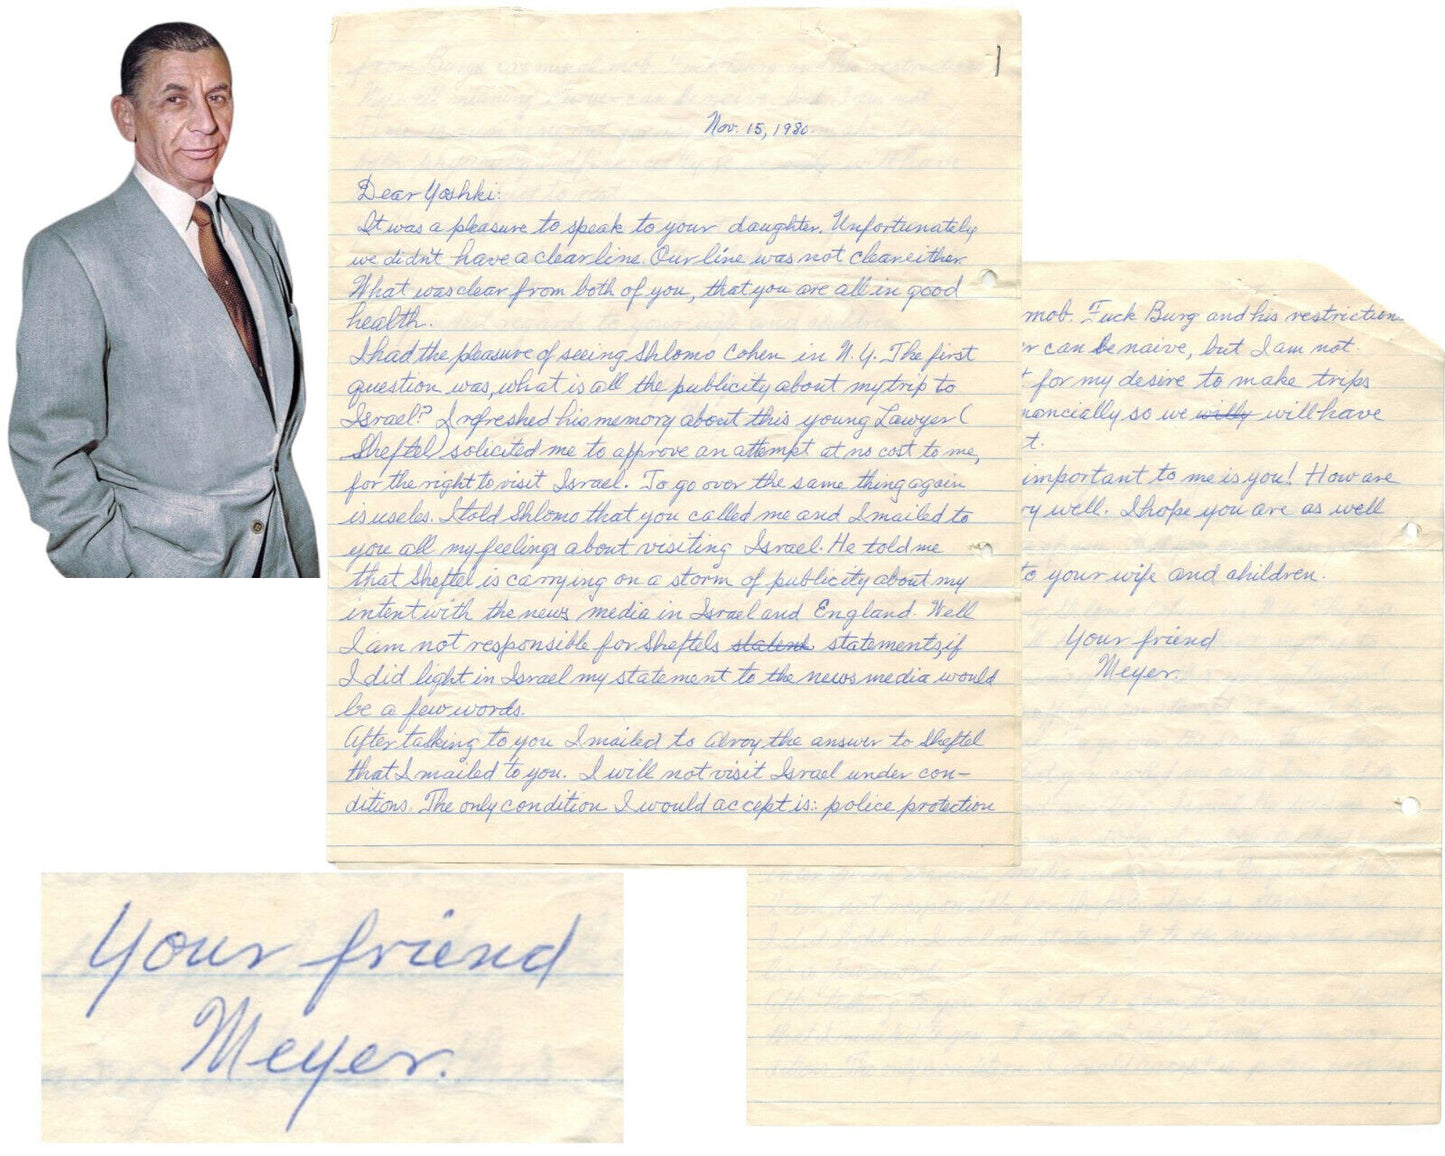 Nov. 15, 1980.
Dear Yoshki:
It was a pleasure to speak to your daughter. Unfortunately
we didn't have a clear line. Our line was not clear either.
What was clear from both of you, that you are all in good
health.
I had the pleasure of seeing Shlomo Cohen in N.Y. The first
question was, what is all the publicity about my trip to
Israel? I refreshed his memory about this young Lawyer (
Sheftel) solicited me to approve an attempt at no cost to me,
for the right to visit Israel. To go over the same thing again
is useles. I told Shlomo that you called me and I mailed to
you all my feelings about visiting Israel. He told me
that Sheftel is carrying on a storm of publicity about my
intent with the news media in Israel and England. Well
I am not responsible for Sheftels statements, if
I did light in Israel my statement to the news media would
be a few words.
After talking to you I mailed to Alroy the answer to Sheftel
that I mailed to you. I will not visit Israel under con-
ditions. The only condition I would accept is: police protection
mob. Fuck Burg and his restriction
er can be naive, but I am not.
t for my desire to make trips
nancially so we willy will have
t.
important to me is you! How are
ry well. I hope you are as well
to your wife and children.
Your friend
Meyer.
Your friend
Meyer.